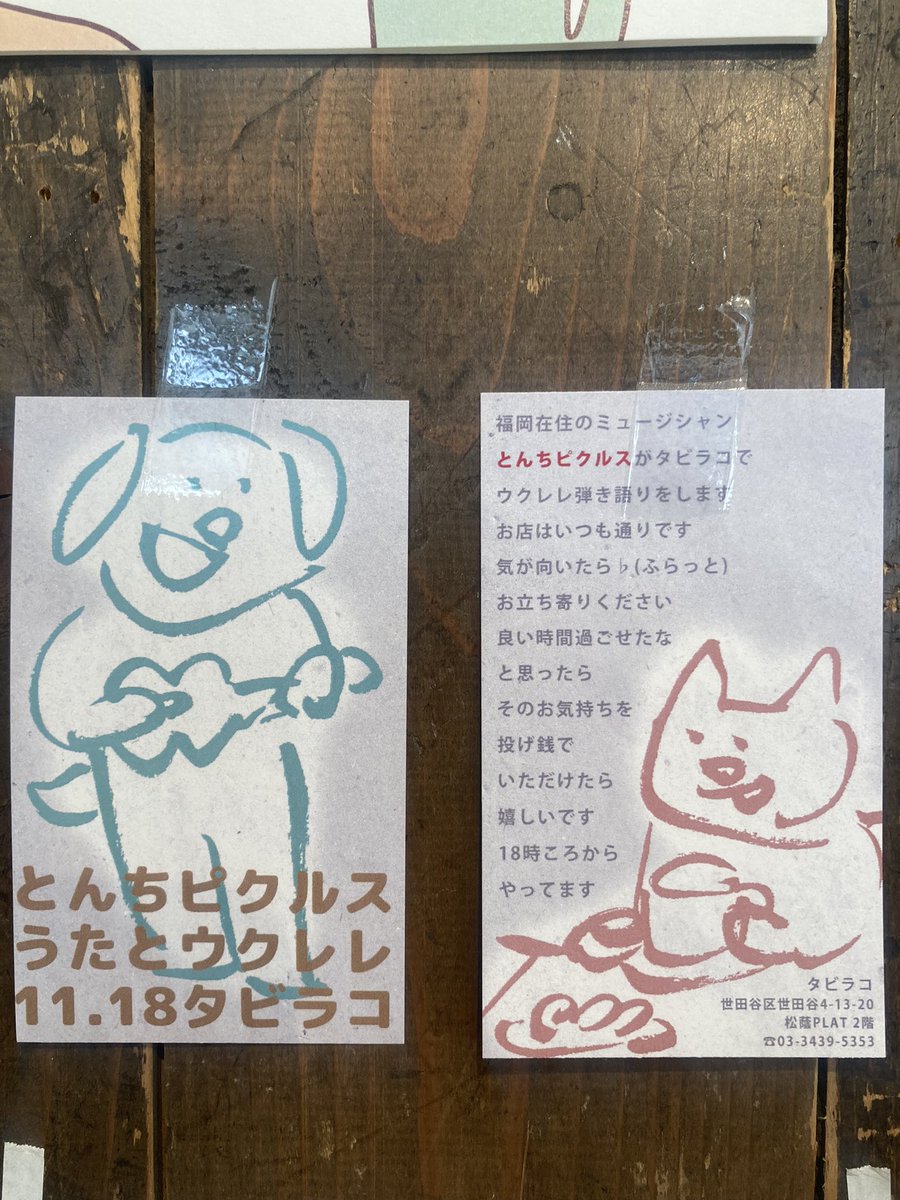 とんちピクルス
うたとウクレレ
11.18タビラコ
福岡在住のミュージシャン
とんちピクルスがタビラコで
ウクレレ弾き語りをします
お店はいつも通りです
気が向いたら♭(ふらっと)
お立ち寄りください
良い時間過ごせたな
と思ったら
そのお気持ちを
投げ銭で
いただけたら
嬉しいです
18時ころから
やってます
タビラコ
世田谷区世田谷4-13-20
松蔭PLAT 2階
☎03-3439-5353